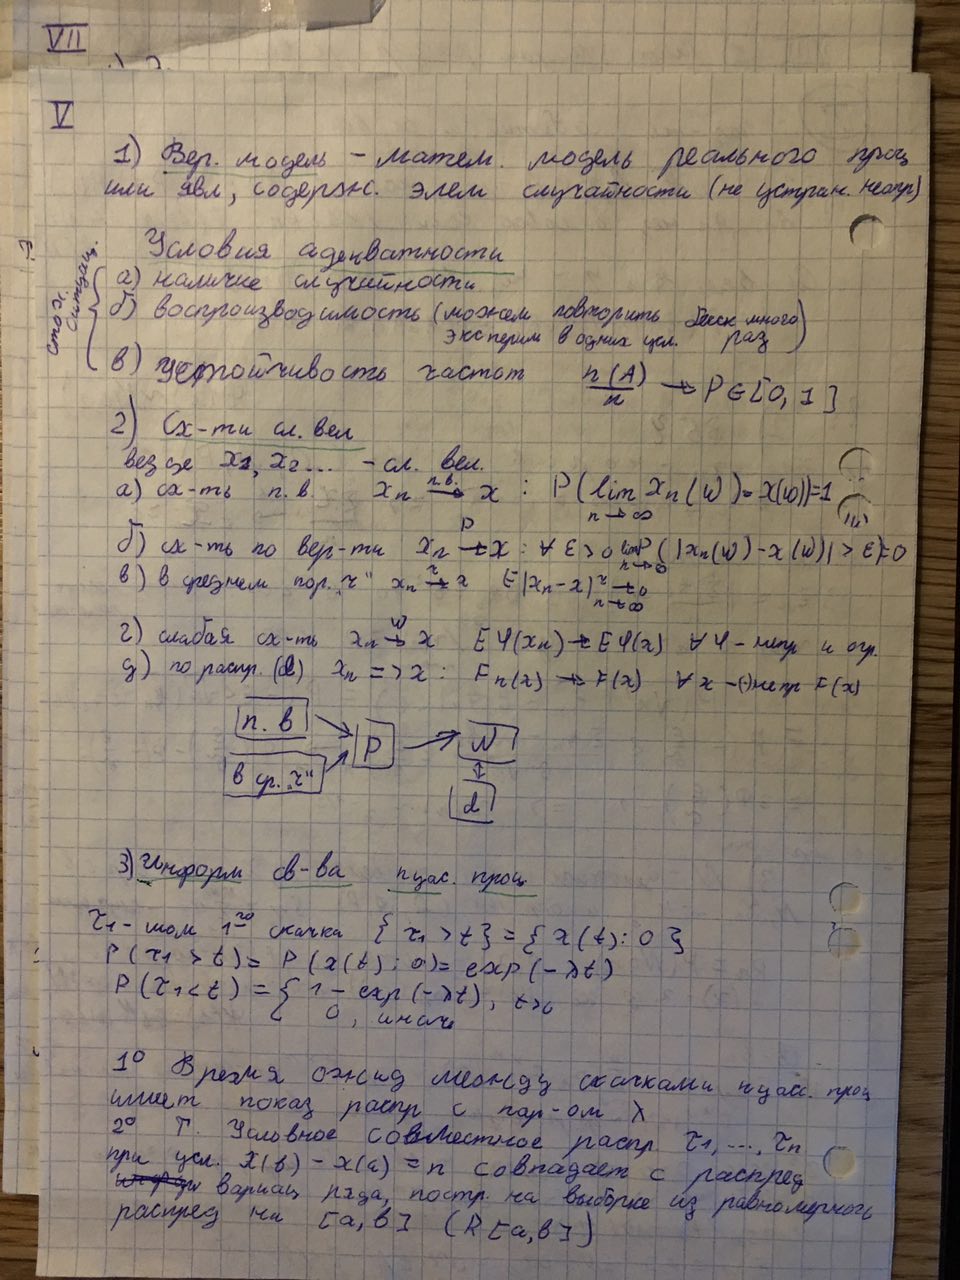 VII
V
1) Вер. модель - матем. модель реального проц
или явл, содерж. элем случайности (не устран. неопр)
Условия адекватности
стох. ситуац.
а) наличие случайности
б) воспроизводимость (можем повторить беск много
эксперим в одних усл. раз)
в) Устойчивость частот n(A)/n → P ∈ [0, 1]
2) Сх-ти сл. вел
везде x1, x2... - сл. вел.
а) сх-ть п. в. xn п.в.→ x : P(lim n→∞ xn(w) = x(w))=1
б) сх-ть по вер-ти xn P→ x : ∀ ε > 0 lim n→∞ P(|xn(w) - x(w)| > ε)=0
в) в среднем пор. "r" xn r→ x E|xn - x|^r → 0 n→∞
г) слабая сх-ть xn w→ x Eφ(xn) → Eφ(x) ∀ φ - непр и огр.
д) по распр. (d) xn => x : Fn(x) → F(x) ∀ x - (·) непр F(x)
п. в → P → W
в ср. "r" ↕
d
3) Информ св-ва пуас. проц
τ1 - мом 1го скачка { τ1 > t } = { x(t) : 0 }
P(τ1 > t) = P(x(t) : 0) = exp(-λt)
P(τ1 < t) = { 1 - exp(-λt), t>0
0, иначе
1° Время ожид между скачками пуасс. проц
имеет показ распр с пар-ом λ
2° Т. Условное совместное распр τ1, ..., τn
при усл. X(b) - X(a) = n совпадает с распред
вариац ряда, постр. на выборке из равномерного
распред на [a, b] (R[a, b])